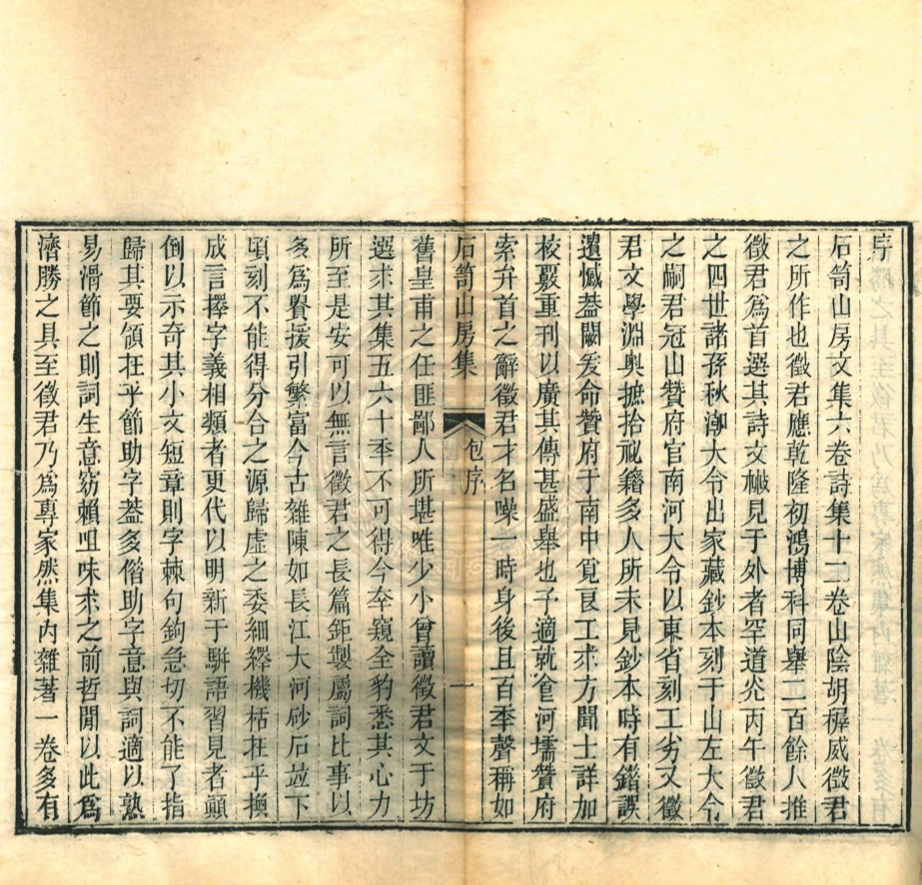 序
石笥山房文集六卷詩集十二卷山陰胡稺威徵君
之所作也徵君應乾隆初鴻博科同舉二百餘人推
徵君爲首選其詩文槸見于外者罕道炗丙午徵君
之四世諸孫秋潮大令出家藏鈔本刻于山左大令
之嗣君冠山贊府官南河大令以東省刻工劣又徵
君文學淵奧摭拾祕籍多人所未見鈔本時有鍇誤
遺憾葢闕爰命贊府于南中覓良工求方聞士詳加
校覈重刊以廣其傳甚盛舉也予適就食河壖贊府
索弁首之辭徵君才名噪一時身後且百季聲稱如
石笥山房集
包序
一
舊皇甫之任匪鄙人所堪唯少小曾讀徵君文于坊
選求其集五六十季不可得今夲窺全豹悉其心力
所至是安可以無言徵君之長篇鉅製屬詞比事以
多爲貴援引繁富今古雜陳如長江大河砂石竝下
頃刻不能得分合之源歸虛之委細繹機栝在乎換
成言擇字義相類者更代以明新于駢語習見者顚
倒以示奇其小文短章則字棘句鉤急切不能了指
歸其要領在乎節助字葢多僃助字意與詞適以熟
易滑節之則詞生意窈賴咀味求之前哲閒以此爲
濟勝之具至徵君乃爲專家然集內雜著一卷多有